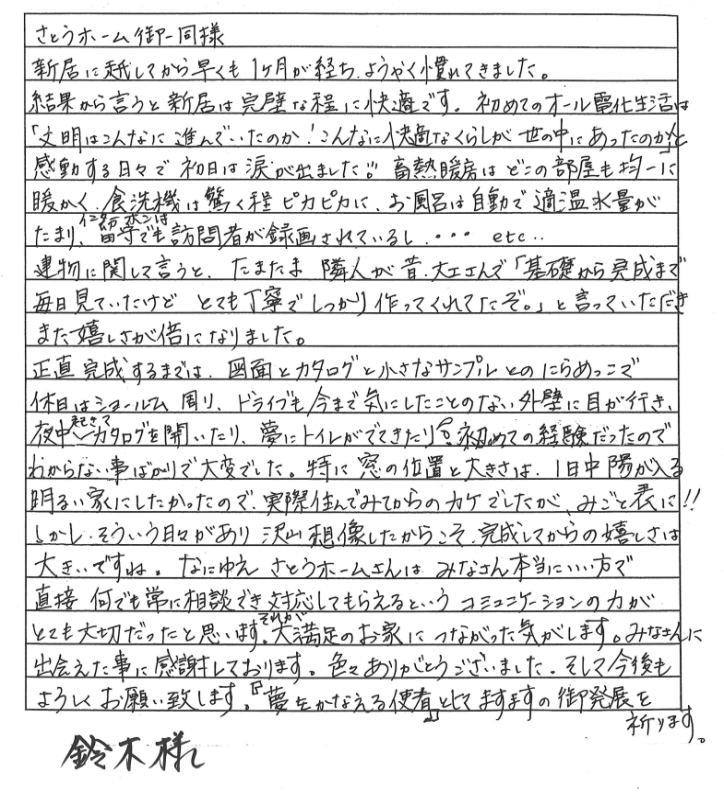 さとうホーム御一同様
新居に越してから早くも1ヶ月が経ち、ようやく慣れてきました。
結果から言うと新居は完璧な程に快適です。初めてのオール電化生活は
「文明はこんなに進んでいたのか!こんなに快適なくらしが世の中にあったのか」と
感動する日々で初日は涙が出ました!!蓄熱暖房はどこの部屋も均一に
暖かく、食洗機は驚く程ピカピカに、お風呂は自動で適温水量が
たまり、インターホンは留守でも訪問者が録画されているし、・・・ etc..
建物に関して言うと、たまたま隣人が昔、大工さんで「基礎から完成まで
毎日見ていたけど とても丁寧でしっかり作ってくれてたぞ。」と言っていただき
また嬉しさが倍になりました。
正直完成するまでは、図面とカタログと小さなサンプルとのにらめっこで
休日はショールム周り、ドライブも今まで気にしたことのない外壁に目が行き、
夜中起きてカタログを開いたり、夢にトイレがでてきたりで。初めての経験だったので
わからない事ばかりで大変でした。特に窓の位置と大きさは、1日中陽が入る
明るい家にしたかったので、実際住んでみてからのカケでしたが、みごと表に!!
しかし、そういう日々があり沢山想像したからこそ、完成してからの嬉しさは
大きいですね。なにゆえ さとうホームさんは みなさん本当にいい方で
直接何でも常に相談でき対応してもらえるというコミュニケーションの力が
とても大切だったと思います。それが大満足のお家につながった気がします。みなさんに
出会えた事に感謝しております。色々ありがとうございました。そして今後も
よろしくお願い致します。『夢をかなえる使者』としてますますの御発展を
祈ります。
鈴木様